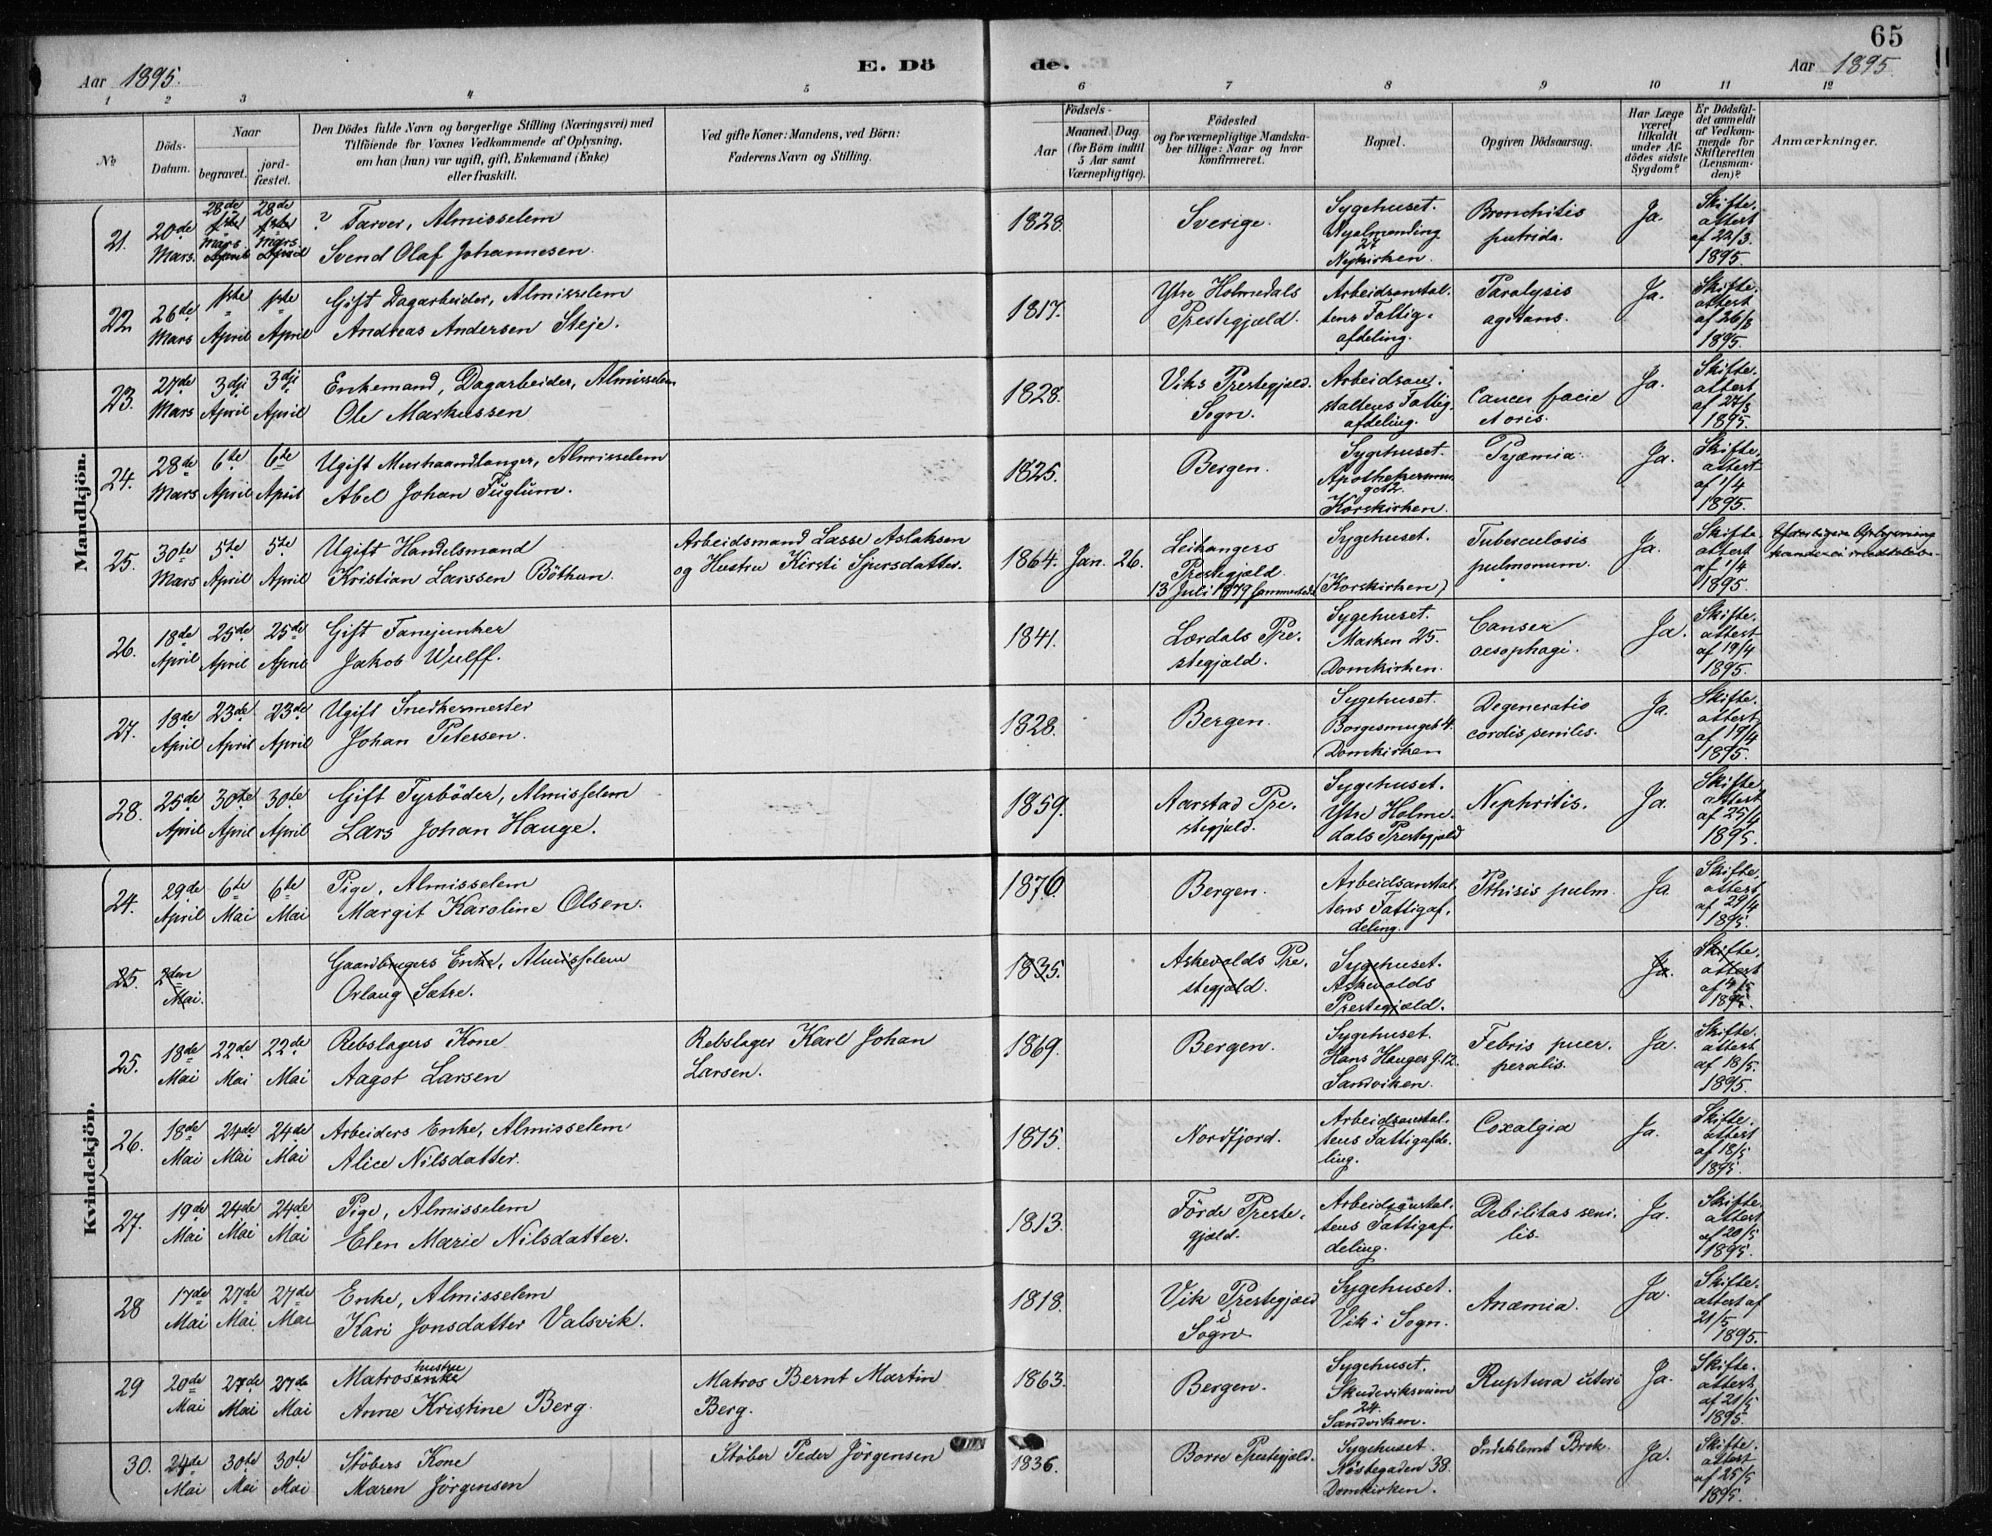 65
Aar 1895.
E. Dö
de.
Aar 1895.
1 2 3 4 5 6 7 8 9 10 11 12
No
Döds-
Datum.
Naar
begravet.
jord-
fæstet.
Den Dödes fulde Navn og borgerlige Stilling (Næringsvei) med
Tilföiende for Voxnes Vedkommende af Oplysning,
om han (hun) var ugift, gift, Enkemand (Enke)
eller fraskilt.
Ved gifte Koner: Mandens, ved Börn:
Faderens Navn og Stilling.
Födsels-
Aar
Maaned. Dag.
(for Börn indtil
5 Aar samt
Værnepligtige).
Födested
og for værnepligtige Mandska-
ber tillige: Naar og hvor
konfirmeret.
Bopæl.
Opgiven Dödsaarsag.
Har Læge
været
tilkaldt
under Af-
dödes sidste
Sygdom?
Er Dödsfal-
det anmeldt
af Vedkom-
mende for
Skifteretten
(Lensman-
den)?
Anmærkninger.
Mandkjön.
21.
20de
Mars.
28de
1ste
Mars
April
28de
1ste
Mars.
April
? Farver, Almisselem
Svend Olaf Johannesen.
1828.
Sverige.
Sygehuset.
Nyalmending
27
Nykirken.
Bronchitis
putrida.
Ja.
Skifte-
attest
af 22/3
1895.
22.
26de
Mars
1ste
April
1ste
April
Gift Dagarbeider, Almisselem
Andreas Andersen Steje.
1817.
Ytre Holmedals
Prestegjæld.
Arbeidsanstal-
tens Fattig-
afdeling.
Paralysis
agitans.
Ja.
Skifte-
attest
af 26/3
1895.
23.
27de
Mars
3dji
April
3dji
April
Enkemand, Dagarbeider, Almisselem
Ole Markussen
1828.
Viks Prestegjæld.
Sogn.
Arbeidsan-
staltens Fattig-
afdeling.
Cancer facie
Ja.
Skifte-
attest
af 27/3
1895.
24.
28de
Mars
6te
April
6te
April
Ugift Murhaandlanger, Almisselem
Abel Johan Fuglum.
1825.
Bergen.
Sygehuset.
Korskirken.
Pyæmia
Ja.
Skifte-
attest
af 1/4
1895.
25.
30te
Mars
5te
April
5te
April
Ugift Handelsmand
Kristian Larssen Böthun.
Arbeidsmand Lasse Aslaksen
og Hustru Kirsti Sjursdatter.
1864. Jan. 26.
Leikangers
Prestegjæld
13 Juli 1879 sammesteds
Sygehuset.
(Korskirken)
Tuberculosis
pulmonum.
Ja.
Skifte-
attest
af 1/4
1895.
26.
18de
April
25de
April
25de
April
Gift Fanejunker
Jakob Wulff.
1841.
Lærdals Pre-
stegjæld.
Sygehuset.
Marken 25.
Domkirken.
Canser
oesophagi.
Ja.
Skifte-
attest
af 19/4
1895.
27.
18de
April
23de
April
23de
April
Ugift Snedkermester
Johan Petersen.
1828.
Bergen.
Sygehuset.
Borgesmuget 4.
Domkirken
Degeneratio
cordis senilis.
Ja.
Skifte-
attest
af 19/4
1895.
28.
25de
April
30te
April
30te
April
Gift Fyrböder, Almisselem
Lars Johan Hauge.
1859.
Aarstad Pre-
stegjæld.
Sygehuset.
Ytre Holme-
dals Prestegjæld
Nephritis.
Ja.
Skifte-
attest
af 25/4
1895.
Kvindekjön.
24.
29de
April
6te
Mai
6te
Mai
Pige, Almisselem
Margit Karoline Olsen.
1876
Bergen.
Arbeidsanstal-
tens Fattigaf-
deling.
Pthisis pulm.
Ja
Skifte-
attest
af 29/4
1895.
25.
2den
Mai.
Gaardbrugers Enke, Almisselem
Orlaug Sætre.
1835.
Askevolds Pre-
stegjæld.
Sygehuset.
Askevolds
Prestegjæld.
Ja.
Skifte-
attest
af 4/5
1895.
25.
18de
Mai
22de
Mai
22de
Mai
Rebslagers Kone
Aagot Larsen
Rebslager Karl Johan
Larsen.
1869.
Bergen.
Sygehuset.
Hans Hauges G. 12.
Sandviken.
Febris puer-
peralis.
Ja.
Skifte-
attest
af 18/5
1895.
26.
18de
Mai
24de
Mai
24de
Mai
Arbeiders Enke, Almisselem
Alice Nilsdatter.
1815.
Nordfjord.
Arbeidsanstal-
tens Fattigafde-
ling.
Coxalgia
Ja.
Skifte-
attest
af 18/5
1895.
27.
19de
Mai
24de
Mai
24de
Mai
Pige, Almisselem
Elen Marie Nilsdatter.
1813.
Förde Preste-
gjæld.
Arbeidsanstal-
tens Fattigaf-
deling.
Debilitas seni-
lis.
Ja.
Skifte-
attest
af 20/5
1895.
28
17de
Mai
27de
Mai
27de
Mai
Enke, Almisselem
Kari Jonsdatter Valsvik.
1818.
Vik Prestegjæld
i
Sogn
Sygehuset.
Vik i Sogn.
Anæmia.
Ja.
Skifte-
attest af
21/5
1895.
29
20de
Mai
27de
Mai
27de
Mai
hustru
Matrosenke
Anne Kristine Berg.
Matros Bernt Martin
Berg.
1863.
Bergen.
Sygehuset.
Skudeviksveien
24.
Sandviken.
Ruptura uteri
Ja.
Skifte-
attest
af 21/5
1895.
30.
24de
Mai
30te
Mai
30te
Mai
Stöbers Kone
Maren Jörgensen
Stöber Peder Jörgensen
1836.
Borre Prestegjeld.
Sygehuset.
Nöstegaden 38.
Domkirken.
Indeklemt Brok.
Ja.
Skifte-
attest
af 25/5
1895.